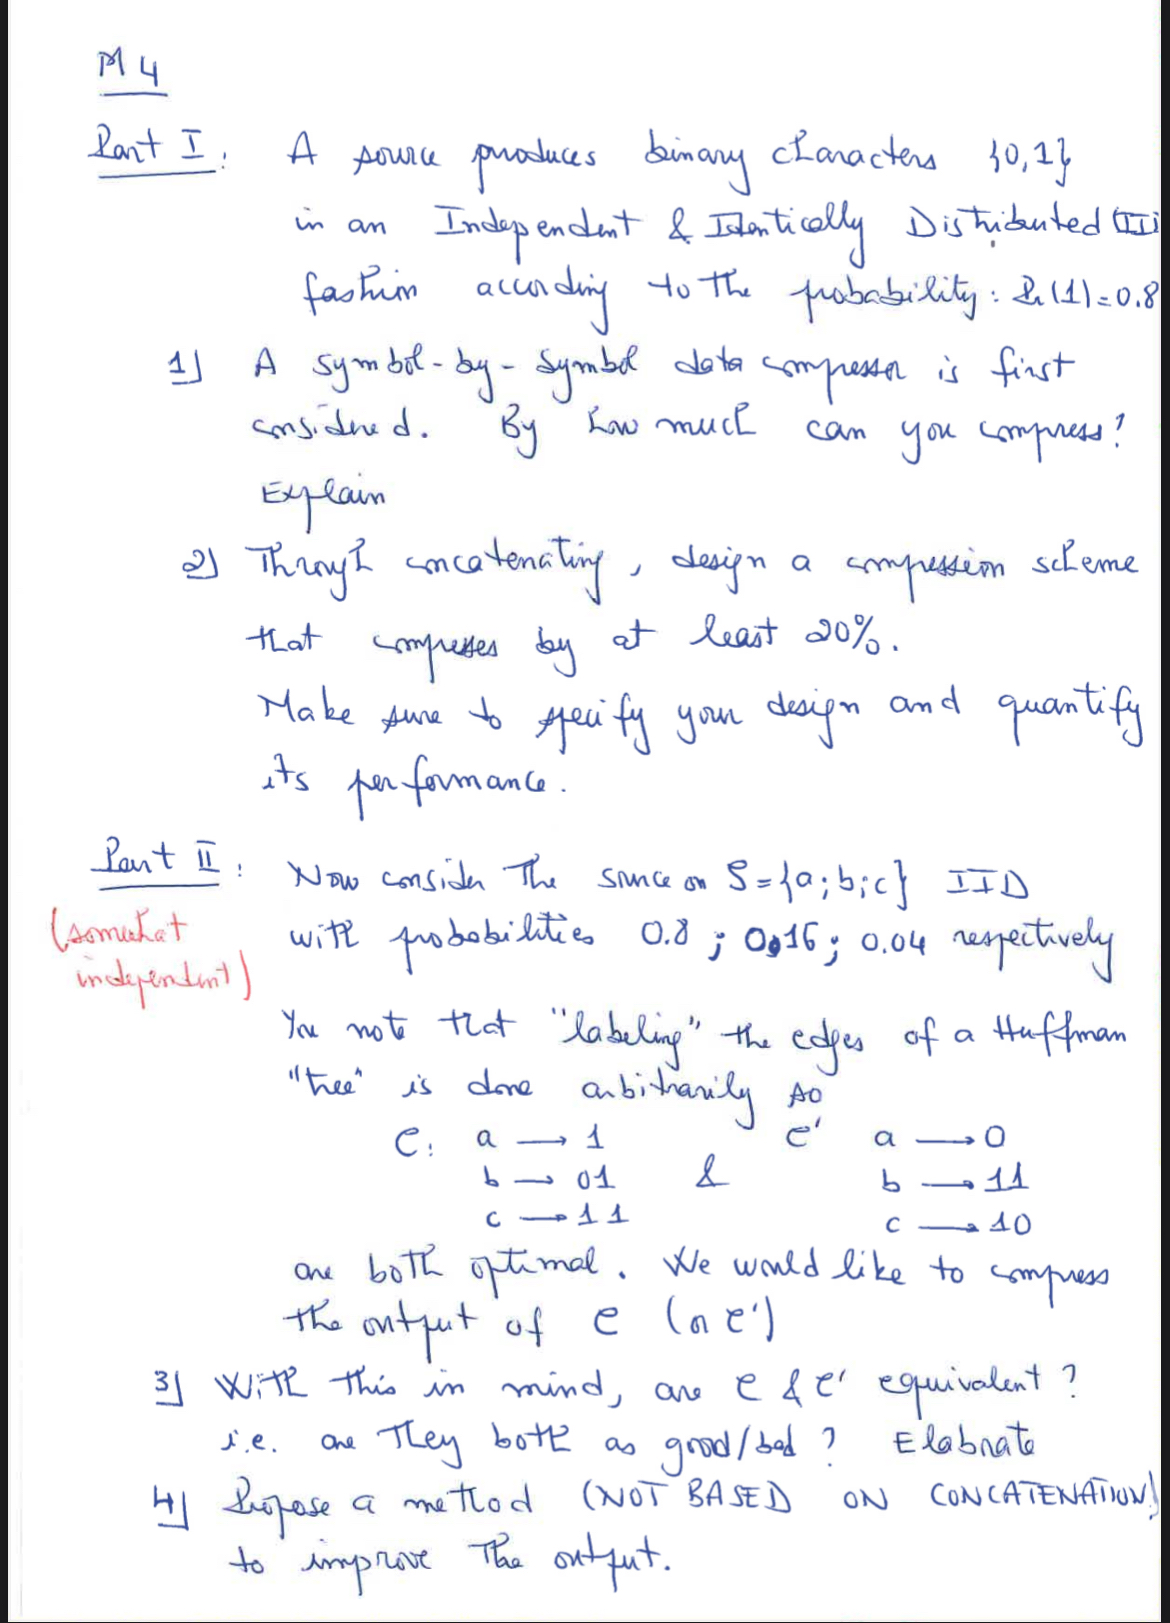 M4
Part I: A source produces binary characters {0,1}
in an Independent & Identically Distributed (III
fashion according to the probability: Pr(1)=0.8
1) A symbol-by-symbol data compressor is first
considered. By how much can you compress?
Explain
2) Through concatenating, design a compression scheme
that compresses by at least 20%.
Make sure to specify your design and quantify
its performance.
Part II: Now consider the source on S={a;b;c} IID
(somewhat
with probabilities 0.8; 0.16; 0.04 respectively
independent)
You note that "labeling" the edges of a Huffman
"tree" is done arbitrarily so
C: a → 1 & C' a → 0
b → 01 b → 11
c → 11 c → 10
are both optimal. We would like to compress
the output of C (or C')
3) With this in mind, are C & C' equivalent?
i.e. are they both as good/bad? Elaborate
4) Propose a method (NOT BASED ON CONCATENATION)
to improve the output.